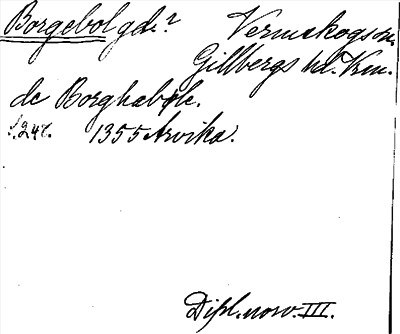 Borgebol gde? Vermskogs sn.
Gillbergs hd. Vrm.
de Borghabøle.
s. 248. 1355 Arvika.
Dipl. norv. III.